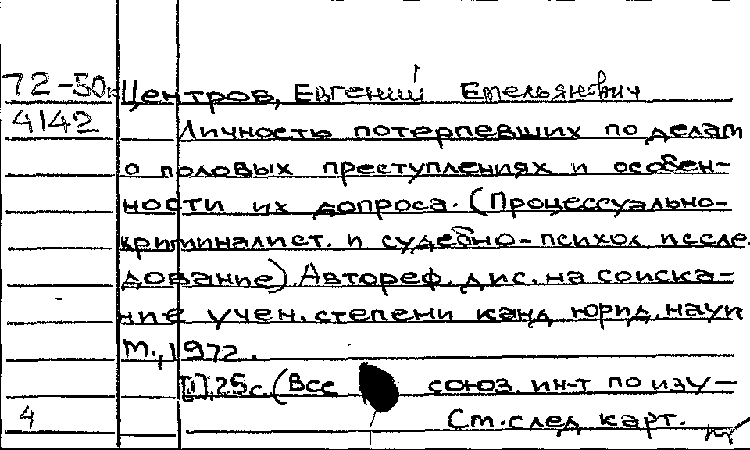 72-50к Центров, Евгений Емельянович
4142 Личность потерпевших по делам
о половых преступлениях и особен-
ности их допроса. (Процессуально-
криминалист. и судебно-психол. иссле
дование). Автореф. дис. на соиска-
ние учен. степени канд юрид. наук
М., 1972.
[1], 25 с. (Все союз. ин-т по изу-
4 См. след карт.